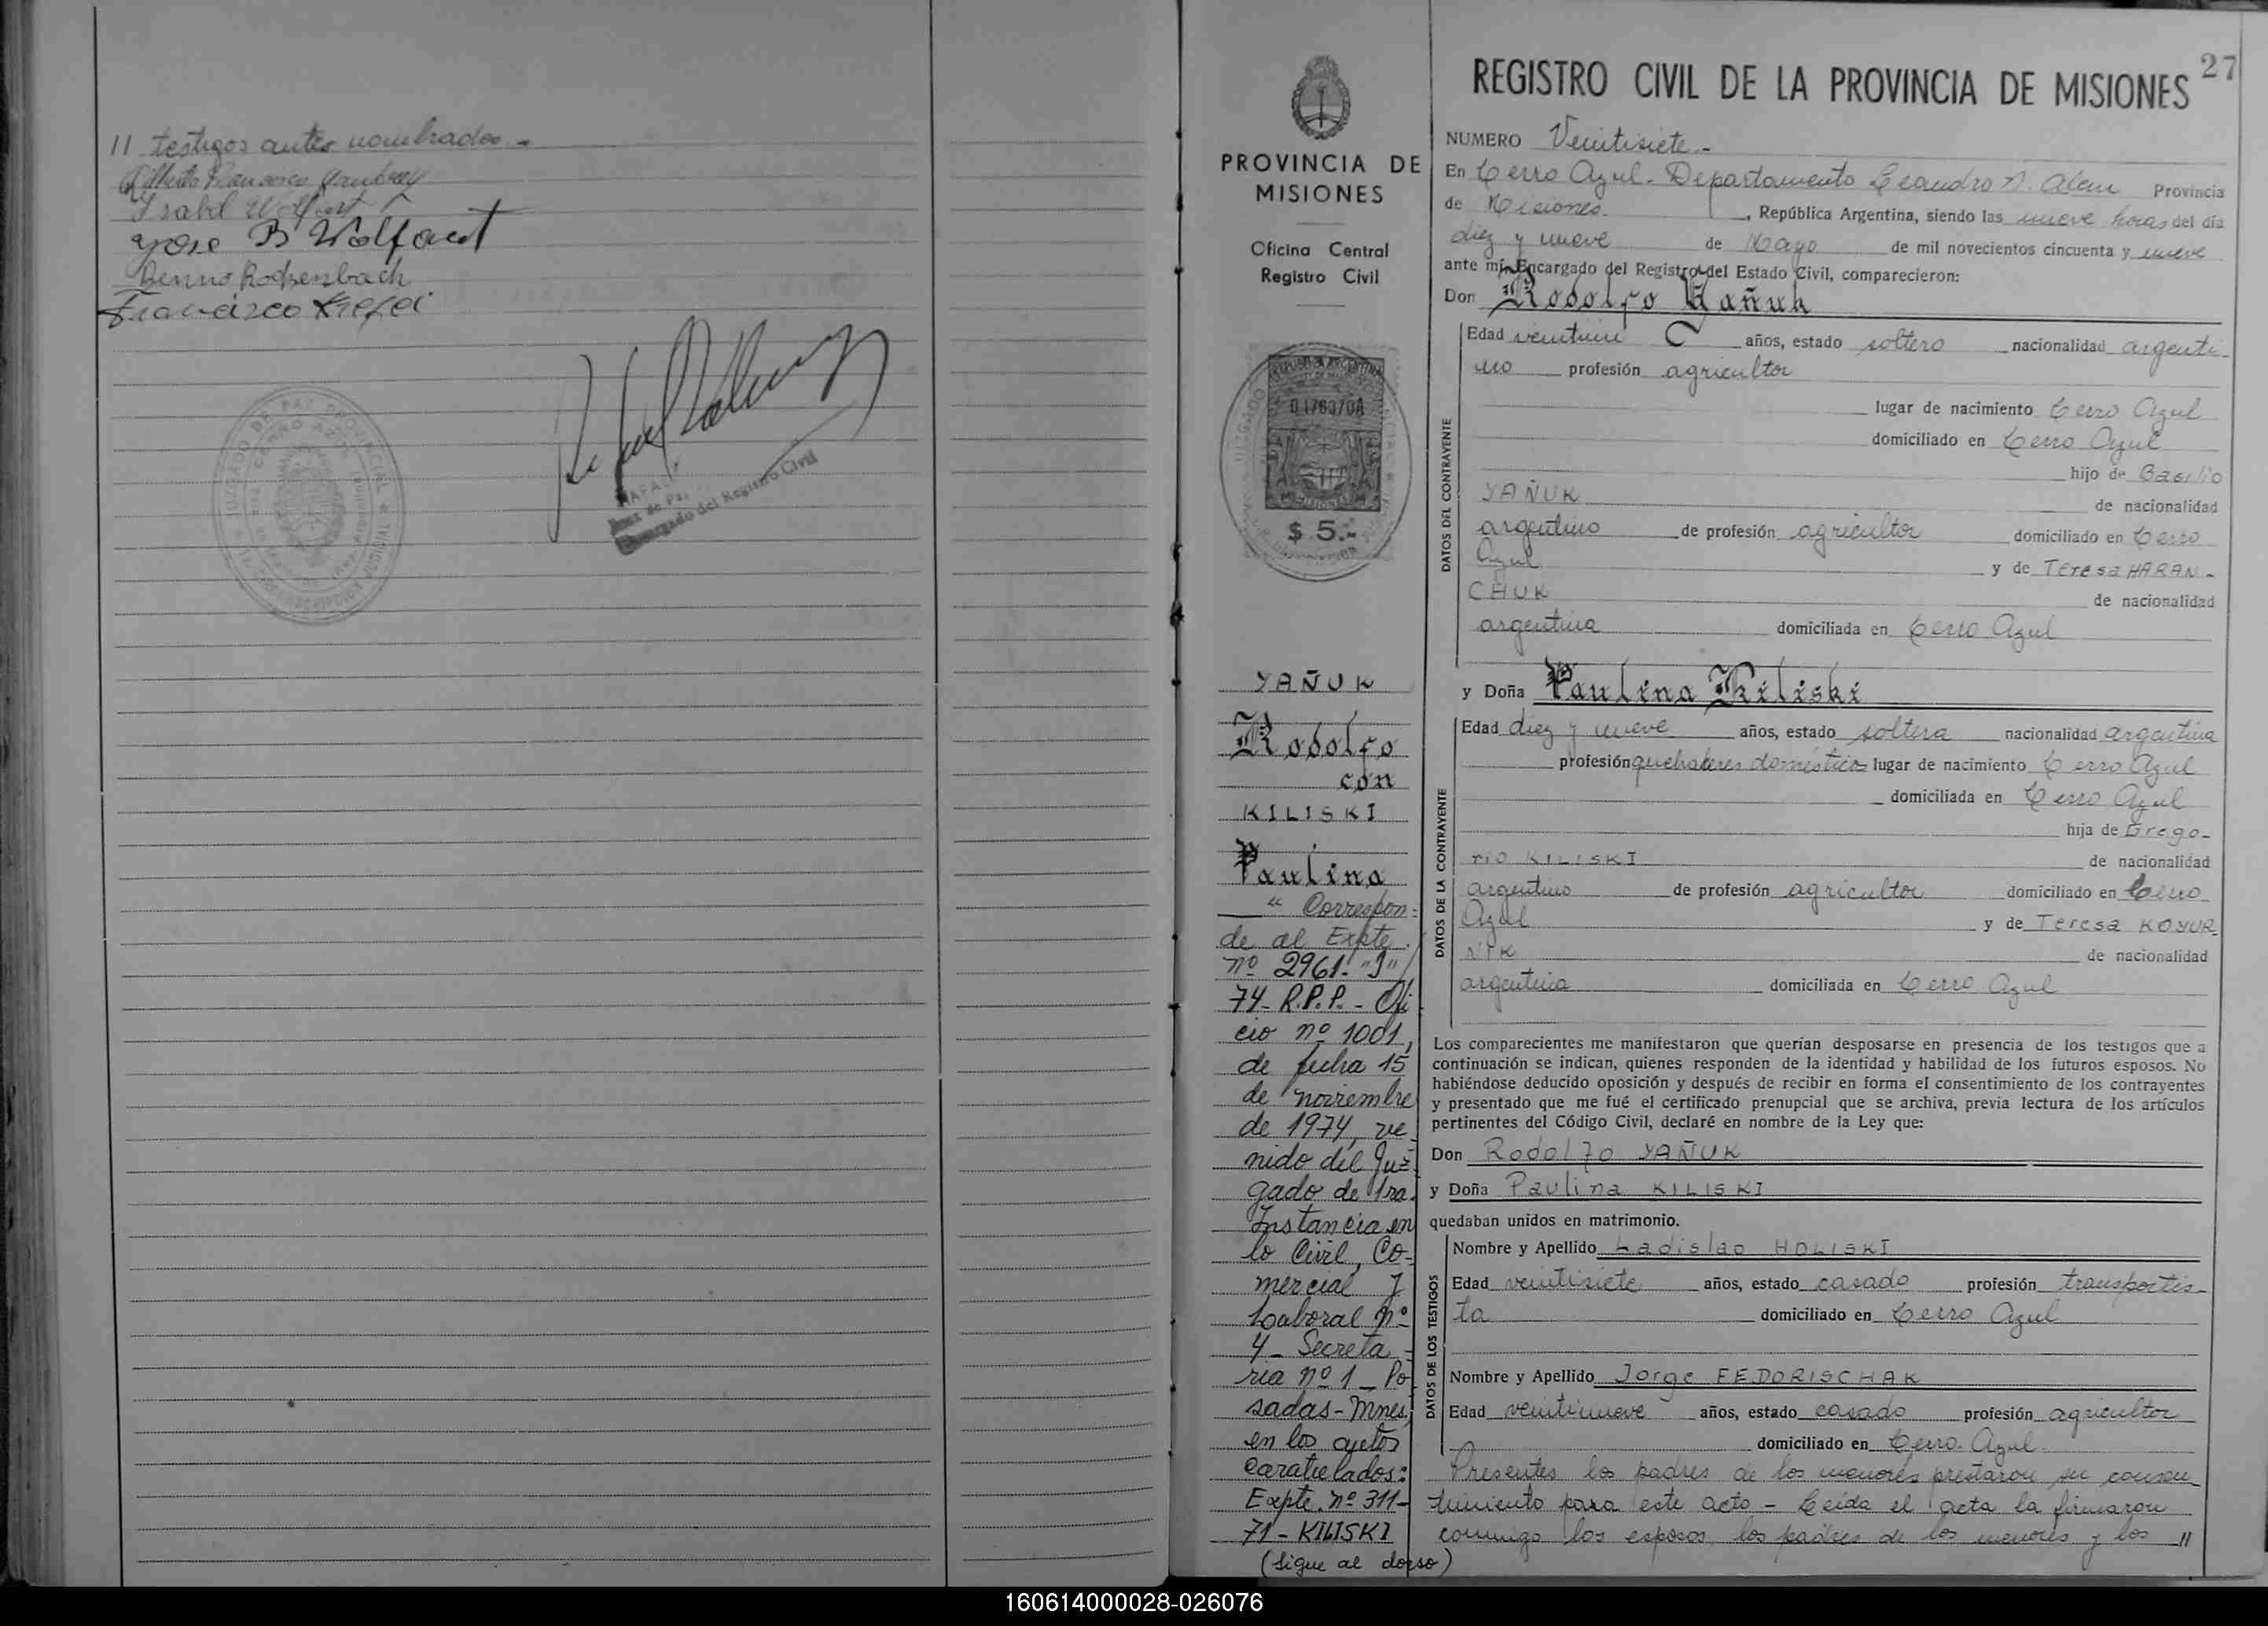 11 testigos antes nombrados.-
Isabel Wolfart
Jose B Wolfart
Benno Rochenbach
Francisco
JUZGADO DE PAZ PROVINCIAL
CERRO AZUL
Juez de Paz
Encargado del Registro Civil
27
REGISTRO CIVIL DE LA PROVINCIA DE MISIONES
PROVINCIA DE
MISIONES
Oficina Central
Registro Civil
REPUBLICA ARGENTINA
MISIONES
$ 5.-
YAÑUK
Rodolfo
con
KILISKI
Paulina
" Correspon-
de al Expte.
nº 2961- "J"/
74- R.P.P. - Ofi
cio nº 1001,
de fecha 15
de noviembre
de 1974, ve-
nido del Juz-
gado de 1ra.
Instancia en
lo Civil, Co-
mercial y
Laboral nº
4 - Secreta-
ria nº 1 - Po
sadas - Mnes,
en los autos
caratulados:
Expte. nº 311-
71 - KILISKI
(Sigue al dorso)
NUMERO Veintisiete.-
En Cerro Azul - Departamento Leandro N. Alem Provincia
de Misiones, República Argentina, siendo las nueve horas del día
diez y nueve de Mayo de mil novecientos cincuenta y nueve
ante mí, Encargado del Registro del Estado Civil, comparecieron:
Don Rodolfo Yañuk
Edad veintiun años, estado soltero nacionalidad argenti-
no profesión agricultor
lugar de nacimiento Cerro Azul
domiciliado en Cerro Azul
hijo de Basilio
YAÑUK de nacionalidad
argentino de profesión agricultor domiciliado en Cerro
Azul y de Teresa HARAN-
CHUK de nacionalidad
argentina domiciliada en Cerro Azul
DATOS DEL CONTRAYENTE
y Doña Paulina Kiliski
Edad diez y nueve años, estado soltera nacionalidad argentina
profesión quehaceres domésticos lugar de nacimiento Cerro Azul
domiciliada en Cerro Azul
hija de Grego-
rio KILISKI de nacionalidad
argentino de profesión agricultor domiciliado en Cerro
Azul y de Teresa KOYUR-
NIK de nacionalidad
argentina domiciliada en Cerro Azul
DATOS DE LA CONTRAYENTE
Los comparecientes me manifestaron que querían desposarse en presencia de los testigos que a
continuación se indican, quienes responden de la identidad y habilidad de los futuros esposos. No
habiéndose deducido oposición y después de recibir en forma el consentimiento de los contrayentes
y presentado que me fué el certificado prenupcial que se archiva, previa lectura de los artículos
pertinentes del Código Civil, declaré en nombre de la Ley que:
Don Rodolfo YAÑUK
y Doña Paulina KILISKI
quedaban unidos en matrimonio.
Nombre y Apellido Ladislao HOLISKI
Edad veintisiete años, estado casado profesión transportis-
ta domiciliado en Cerro Azul
Nombre y Apellido Jorge FEDORISCHAK
Edad veintinueve años, estado casado profesión agricultor
domiciliado en Cerro Azul.
DATOS DE LOS TESTIGOS
Presentes los padres de los menores prestaron su consen-
timiento para este acto - Leída el acta la firmaron
conmigo los esposos, los padres de los menores y los 11
160614000028-026076